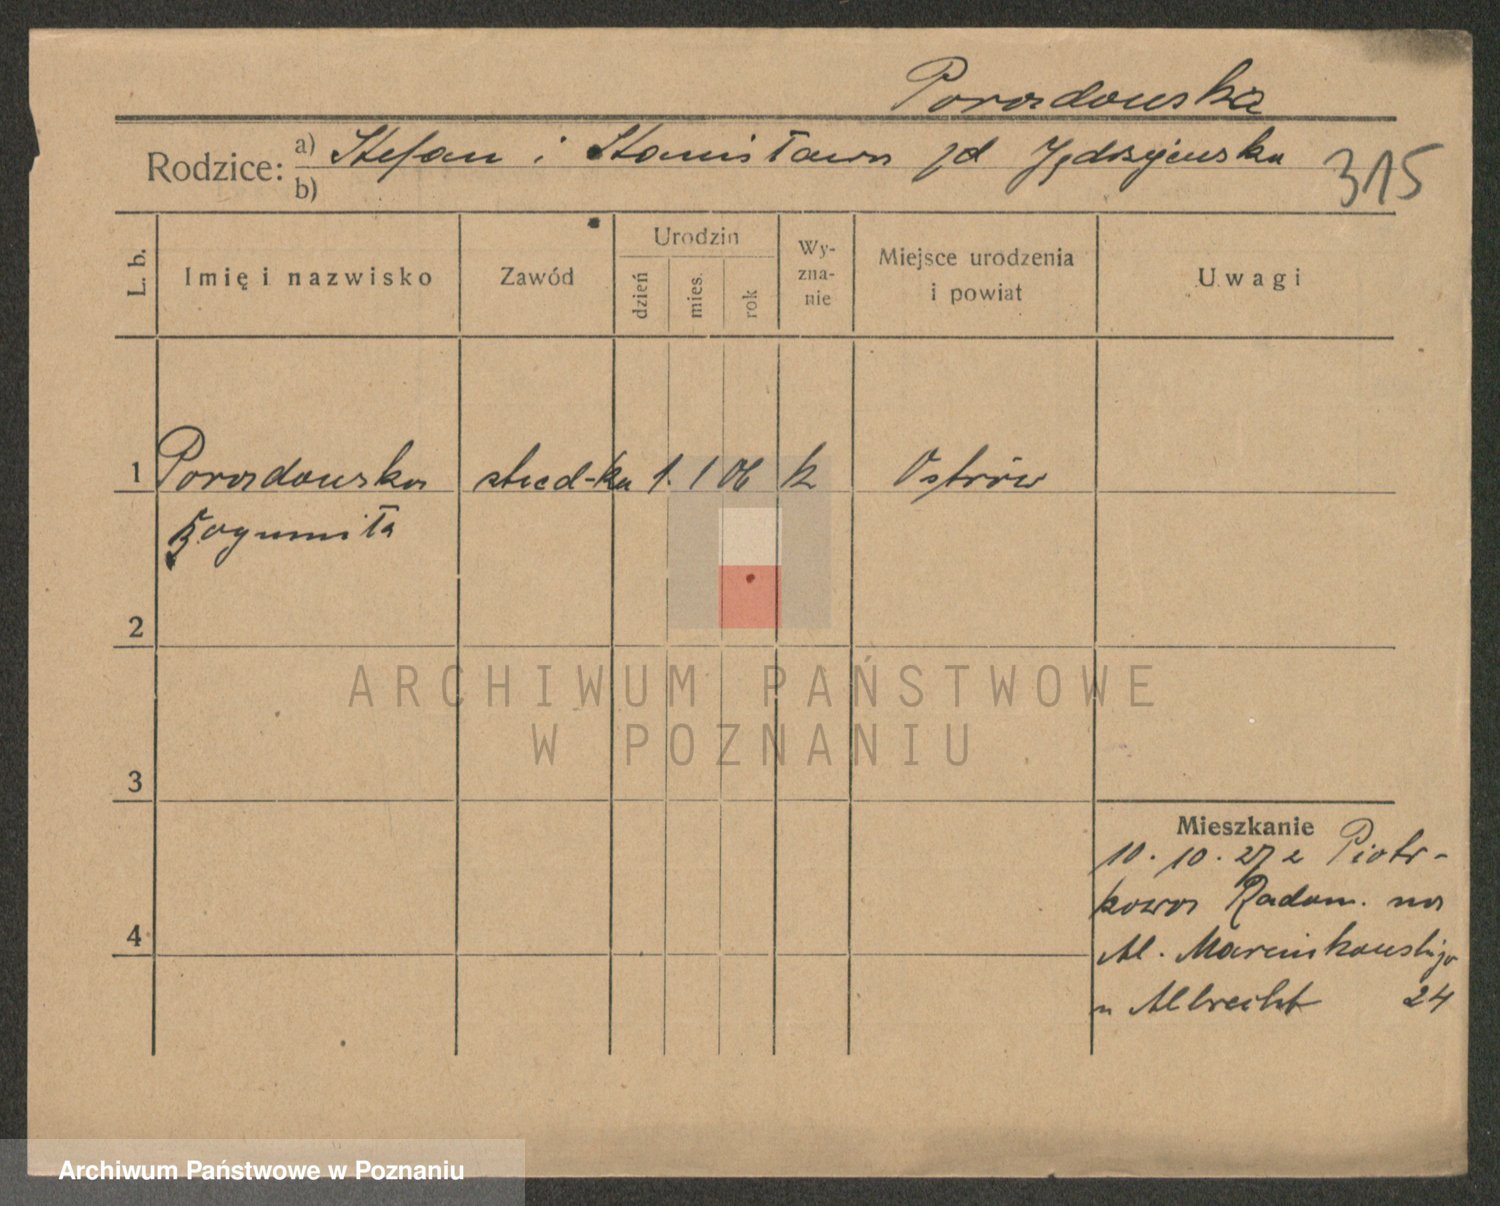 Porazdowska
Rodzice: a) Stefan i Stanisława zd Jędrzejewska
b)
315
L. b.
Imię i nazwisko
Zawód
Urodzin
dzień
mies.
rok
Wy-
zna-
nie
Miejsce urodzenia
i powiat
Uwagi
1 Porazdowska stud-ka 1. 1 06 k Ostrów
Bogumiła
2
3
4
Mieszkanie
10. 10. 27 z Piotr-
kowa Radom. na
Al. Marcinkowskiego
u Albrecht 24
ARCHIWUM PAŃSTWOWE
W POZNANIU
Archiwum Państwowe w Poznaniu